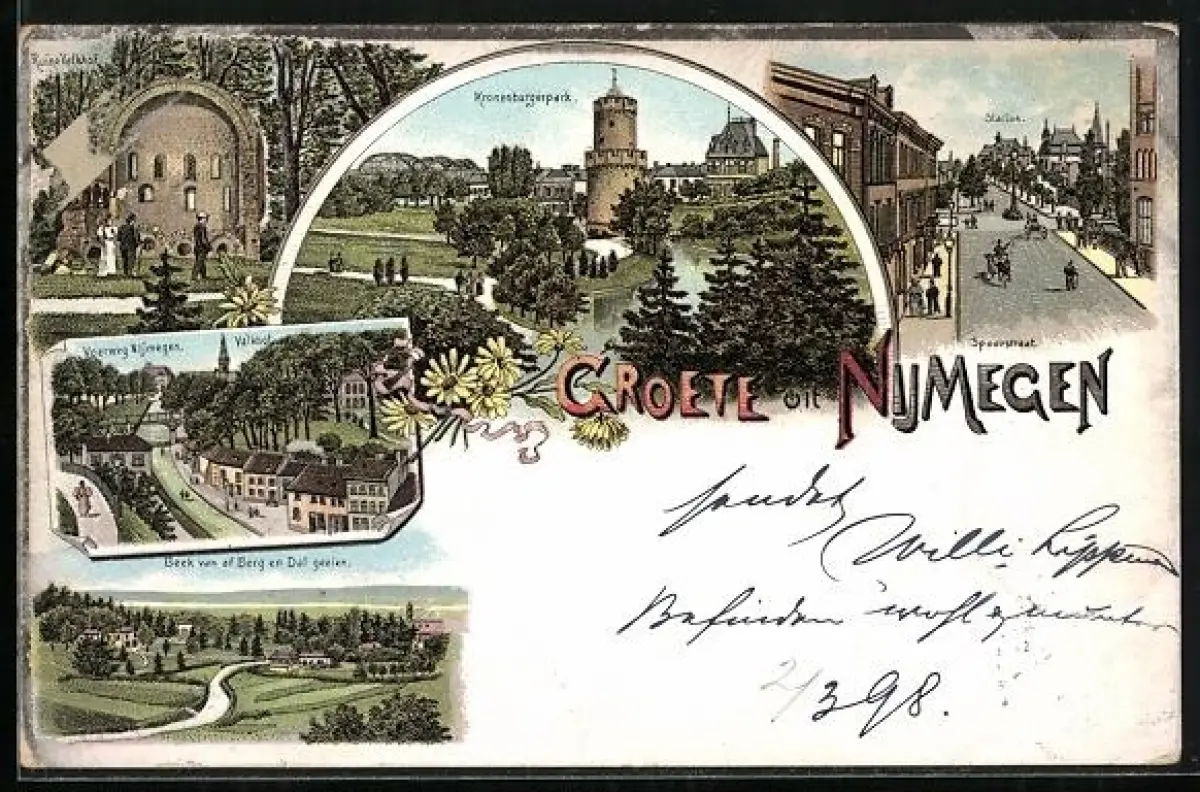 Ruine Valkhof.
Kronenburgerpark.
Station.
Spoorstraat.
Voerweg Nijmegen.
Valkhof
GROETE uit NIJMEGEN
Beek van af Berg en Dal gezien.
sendet
Willi
Befinden wohl & munter
2/3 98.